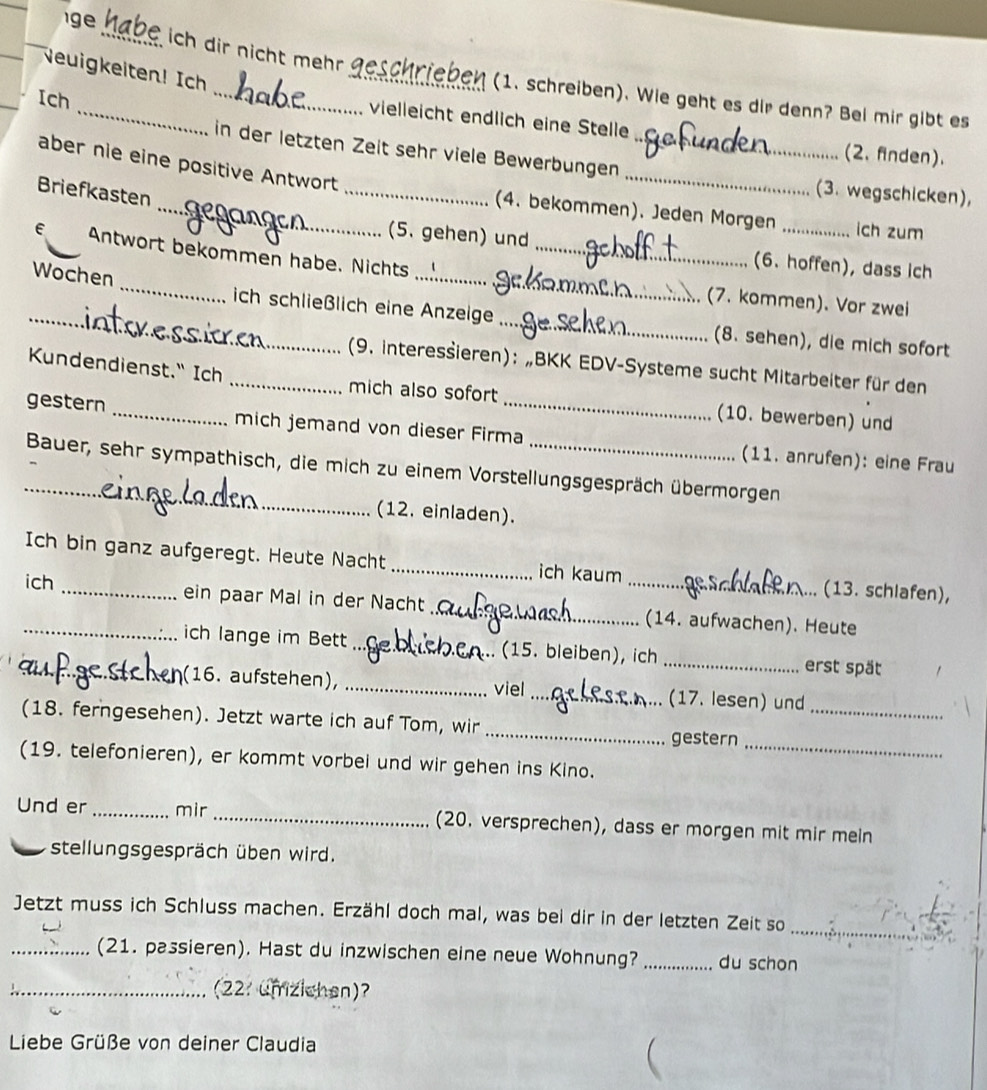 ge habe ich dir nicht mehr geschrieben (1. schreiben). Wie geht es dir denn? Bei mir gibt es
Neuigkeiten! Ich habe vielleicht endlich eine Stelle gefunden (2. finden).
Ich in der letzten Zeit sehr viele Bewerbungen (3. wegschicken),
aber nie eine positive Antwort (4. bekommen). Jeden Morgen ich zum
Briefkasten gegangen (5. gehen) und gehofft (6. hoffen), dass ich
e Antwort bekommen habe. Nichts gekommen (7. kommen). Vor zwei
Wochen ich schließlich eine Anzeige gesehen (8. sehen), die mich sofort
interessieren (9. interessieren): „BKK EDV-Systeme sucht Mitarbeiter für den
Kundendienst." Ich mich also sofort (10. bewerben) und
gestern mich jemand von dieser Firma (11. anrufen): eine Frau
Bauer, sehr sympathisch, die mich zu einem Vorstellungsgespräch übermorgen
eingeladen (12. einladen).
Ich bin ganz aufgeregt. Heute Nacht ich kaum geschlafen (13. schlafen),
ich ein paar Mal in der Nacht aufgewach (14. aufwachen). Heute
ich lange im Bett geblieben (15. bleiben), ich erst spät
aufgestehen (16. aufstehen), viel gelesen (17. lesen) und
(18. ferngesehen). Jetzt warte ich auf Tom, wir gestern
(19. telefonieren), er kommt vorbei und wir gehen ins Kino.
Und er mir (20. versprechen), dass er morgen mit mir mein
stellungsgespräch üben wird.
Jetzt muss ich Schluss machen. Erzähl doch mal, was bei dir in der letzten Zeit so
(21. passieren). Hast du inzwischen eine neue Wohnung? du schon
(22. umziehen)?
Liebe Grüße von deiner Claudia